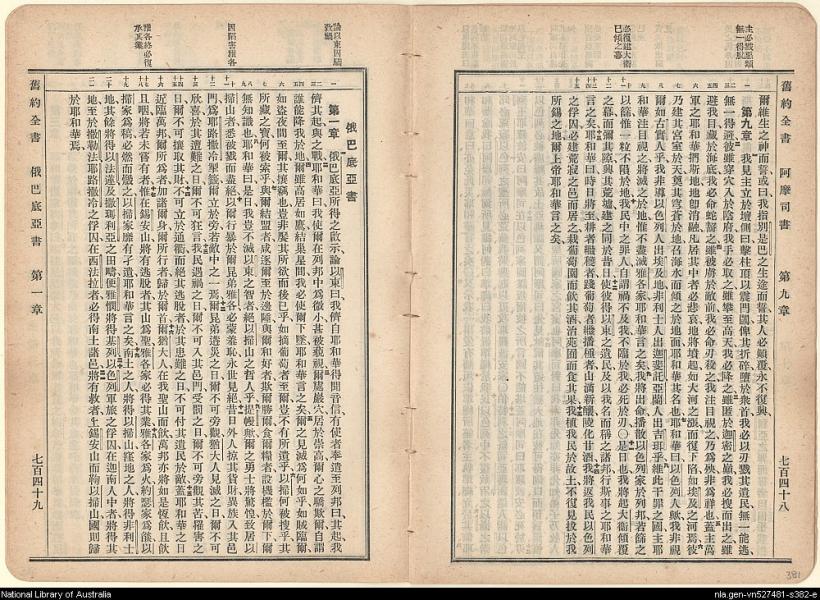 主必滅惡類無一得脫
必復建大衛已傾之幕
舊約全書 阿摩司書 第九章 七百四十八
爾維生之神而誓或曰我指別是巴之生途而誓其人必顛覆永不復興
第九章 我見主立於壇側曰擊柱頂以震門閾俾其折碎墮於衆首我必以刃戮其遺民無一能逃
無一得避彼雖穿穴入於陰府我手必取之雖攀至高天我必降之雖匿於迦密之巔我必搜而出之雖
避我目藏於海底我必命蛇齧之雖被擄於敵前我必命刃殺之我注目視之乃爲殃非爲祥也蓋主萬
軍之耶和華捫斯地地卽消融凡居其中者必悲哀地將墳起如大河之漲而復下陷如埃及之河焉彼
乃建其宮室於天奠其穹蒼於地召海水而傾之於地面耶和華其名也耶和華曰以色列人歟我非視
爾如古實人乎我非導以色列人出埃及地非利士人出迦斐託亞蘭人出吉珥乎維此干罪之國主耶
和華注目視之將滅之於地惟不盡滅雅各家耶和華言之矣我將出命播散以色列家於列邦若篩之
以篩惟一粒不隕於地我民中之罪人自謂禍不及我不臨於我必死於刃○是日也我將起大衛傾覆
之幕而彌其隙興其荒墟建之同於昔日使彼得以東之遺民及以我名而稱之諸邦行斯事之耶和華
言之矣耶和華曰時日將至耕者繼穫者踐葡萄者繼播種者山滴新釀陵化甘酒我將返我民以色列
之俘囚必建荒寂之邑而居之栽葡萄園而飲其酒治苑囿而食其果我植我民於故土不復見拔於我
所錫之地爾上帝耶和華言之矣
381
論以東因驕致禍
因陷害雅各
雅各終必復承其業
俄巴底亞書
第一章 俄巴底亞所得之啟示論以東曰我儕自耶和華得聞音信有使者奉遣至列邦曰其起我
儕其起與之戰耶和華曰我使爾在列邦中爲微小甚被藐視爾處巖穴居於崇高爾心之驕欺爾自謂
誰能降我於地爾雖高居如鷹結巢星間我必使爾下墜耶和華言之矣爾之見滅爲何如乎如賊臨爾
如盜夜間至爾其攘竊也豈非厭其所欲而後已乎如摘葡萄者至爾豈不有所遺乎以掃何被搜乎其
所藏之寶何被索乎與爾結盟者咸逐爾至於邊陲與爾和好者欺爾勝爾食爾糧者設機檻於爾下爾
無知識也耶和華曰是日我豈不滅以東之智者絕以掃山之哲人乎提幔歟爾之勇士將驚惶致居以
掃山者悉被戮而盡絕以爾行暴於爾昆弟雅各必蒙羞恥永世見絕昔日外人掠其貨財異族入其邑
門爲耶路撒冷掣籤爾立於旁若彼中之一焉爾昆弟遘災之日爾不可旁觀猶大人見滅之日爾不可
欣喜於其遭難之日爾不可狂言我民遇禍之日爾不可入其邑門受罰之日爾不可旁觀其苦罹害之
日爾不可攘取其財不可立於通衢而絕其逃脫者於其患難之日不可付其遺民於敵蓋耶和華之日
近臨萬邦爾所爲者加諸爾身爾所行者歸於爾首爾猶大人在我聖山而飲萬邦亦將如是恆飲且飲
且咽將若未嘗有者惟在錫安山將有逃脫者其山爲聖雅各家必得其業雅各家爲火約瑟家爲燄以
掃家爲稿必燃而燬之以掃家靡有孑遺耶和華言之矣南土之人將得以掃山窪地之人將得非利士
地其餘將得以法蓮及撒瑪利亞之田疇便雅憫將得基列以色列軍旅之俘囚在迦南人中者將得其
地至於撒勒法耶路撒冷之俘囚在西法拉者必得南土諸邑將有救者上錫安山而鞫以掃山國則歸
於耶和華焉
舊約全書 俄巴底亞書 第一章 七百四十九
National Library of Australia
nla.gen-vn527481-s382-e